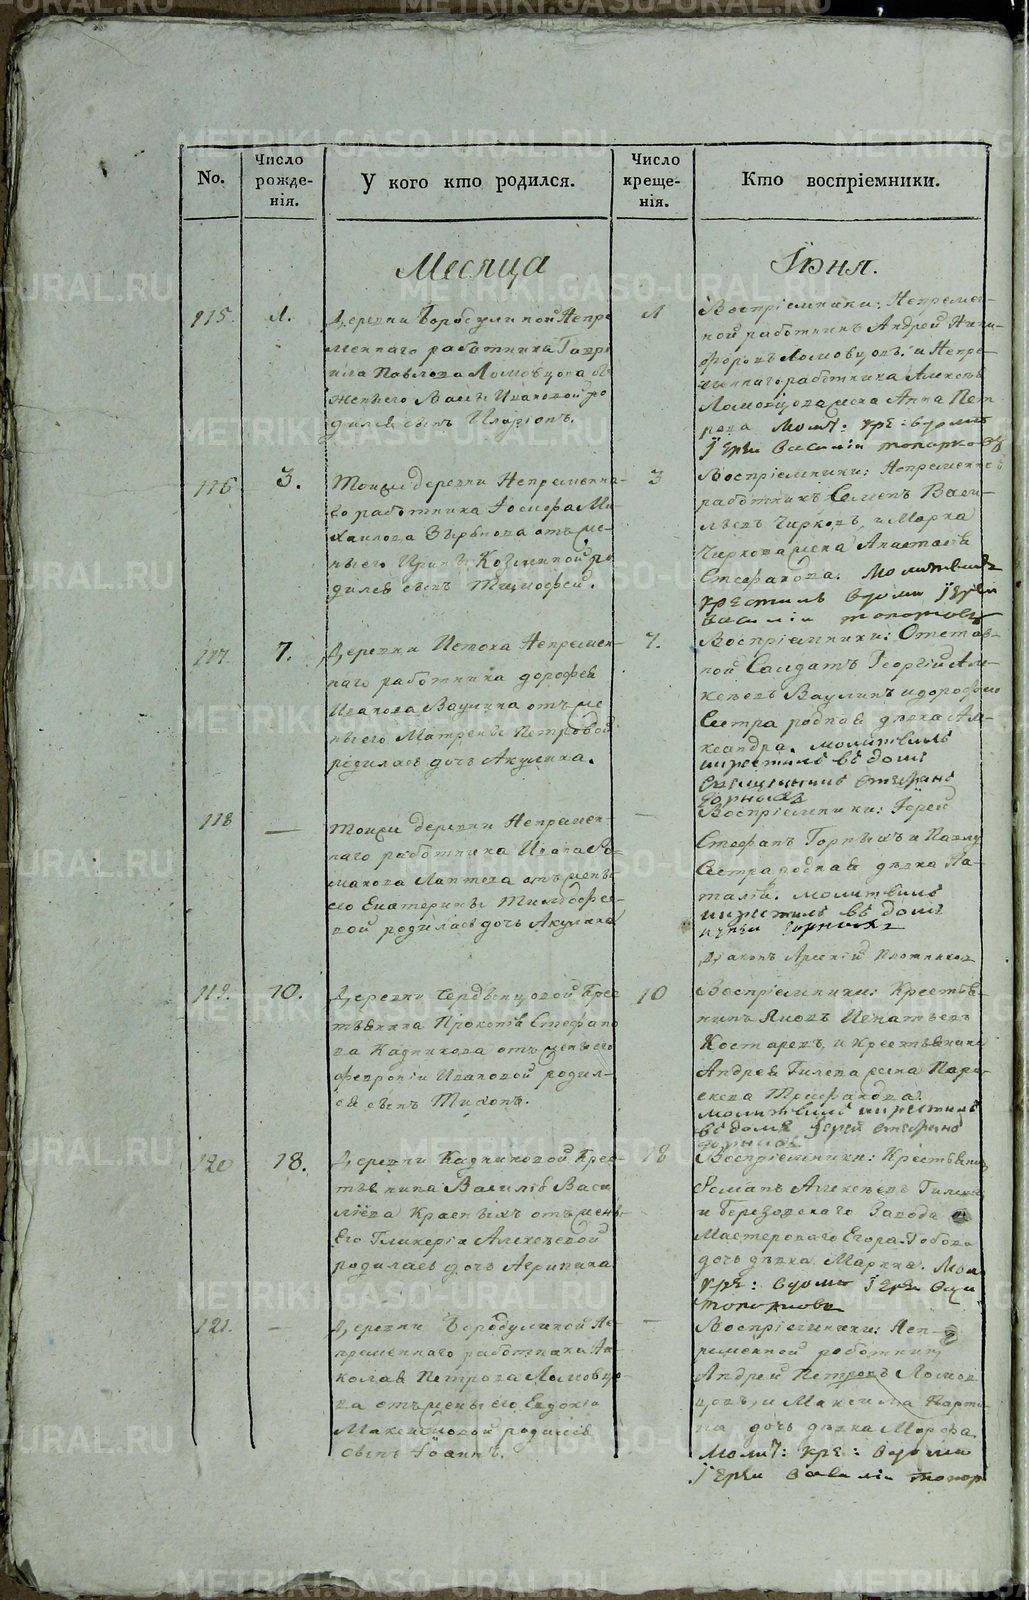 No.
Число рожде-нія.
У кого кто родился.
Число креще-нія.
Кто воспріемники.
Месяца
Іюня.
115.
1.
Деревни Бородулиной Непре
меннаго работника Гаври
ила Павлова Ломовцова от
родился сынъ Иларіонъ.
1
Воспріемники: Непремен-
ной работникъ Андрей Ники-
форовъ Ломовцовъ, и Непре-
меннаго работника Алексея
Ломовцова жена Анна Пет
рова Мол: кре: в доме
Іерей Василій Топорковъ
116
3.
Тойже деревни Непременна-
го работника Іосифа Ми-
хаилова Зырянова отъ же-
ны его Ирины Козминной ро
дился сынъ Тимофей.
3
Воспріемники: Непременной
работникъ Семенъ Васи-
льевъ Чирковъ, и Марка
Чиркова жена Анастасія
Стефанова. Молитвилъ
крестилъ в доме Іерей
Василій Топорковъ
117.
7.
Деревни Истока Непремен-
наго работника Дорофея
Иванова Ваулина отъ же
ны его Матрены Петровой
родилась дочь Акулина.
7.
Воспріемники: Отстав-
ной Салдатъ Георгій Але-
ксѣевъ Ваулинъ и Дорофея
Сестра родная дѣвка Але-
ксандра. молитвилъ
и крестилъ въ домѣ
Священникъ Стефанъ
Горныхъ
118
—
Тойже деревни Непремен-
наго работника Ивана Ро-
манова Лаптева отъ жены
его Екатерины Тимофее-
вой родилась дочь Акулина
—
Воспріемники: Іерей
Стефанъ Горныхъ и Павлу
Сестра родная дѣвка На-
талія. молитвилъ
и крестилъ въ домѣ
Іерей Горныхъ
Діаконъ Арсеній Плотниковъ
119.
10.
Деревни Сердѣнцовой Крес
тьянина Прокопія Стефано
ва Кадникова отъ жены его
Февроніи Ивановой родил-
ся сынъ Тихонъ.
10
Воспріемники: Крестья-
нинъ Яковъ Игнатьевъ
Костаревъ, и крестьянина
Андрея Гилева жена Пара-
скева Трифанова.
молитвилъ и крестилъ
въ домѣ Іерей Стефанъ
Горныхъ
120
18.
Деревни Кадниковой Крес-
тьянина Василія Васи
лїева Красныхъ отъ жены
Его Гликеріи Алексеевой
родилась дочь Агрипина
18
Воспріемники: Крестьянинъ
Романъ Алексеевъ Гилевъ
и Березовскаго Завода
Мастероваго Егора
дочь дѣвка Марина. Мол
кре: в доме Іерей Васи
Топорковъ
121.
—
Деревни Бородулиной Не-
пременнаго работника Ни-
колая Петрова Ломовцо-
ва отъ жены его Евдокіи
Максимовой родился
сынъ Іоаннъ.
—
Воспріемники: Неп-
ременной работникъ
Андрей Петровъ Ломов
цовъ, и Максима
на дочь дѣвка Марфа.
Мол: кре: в доме
Іерей Василій Топор
METRIKI.GASO-URAL.RU